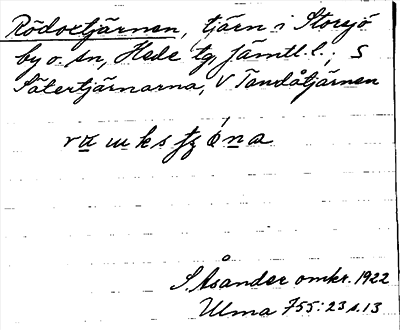 Rödoxtjärnen, tjärn i Storsjö
by o. sn, Hede tg, Jämtl. l.; S
Sätertjärnarna, V Tandåtjärnen
S. Åsander omkr. 1922
Ulma 755:23 s. 13